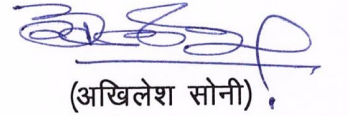 (अखिलेश सोनी)